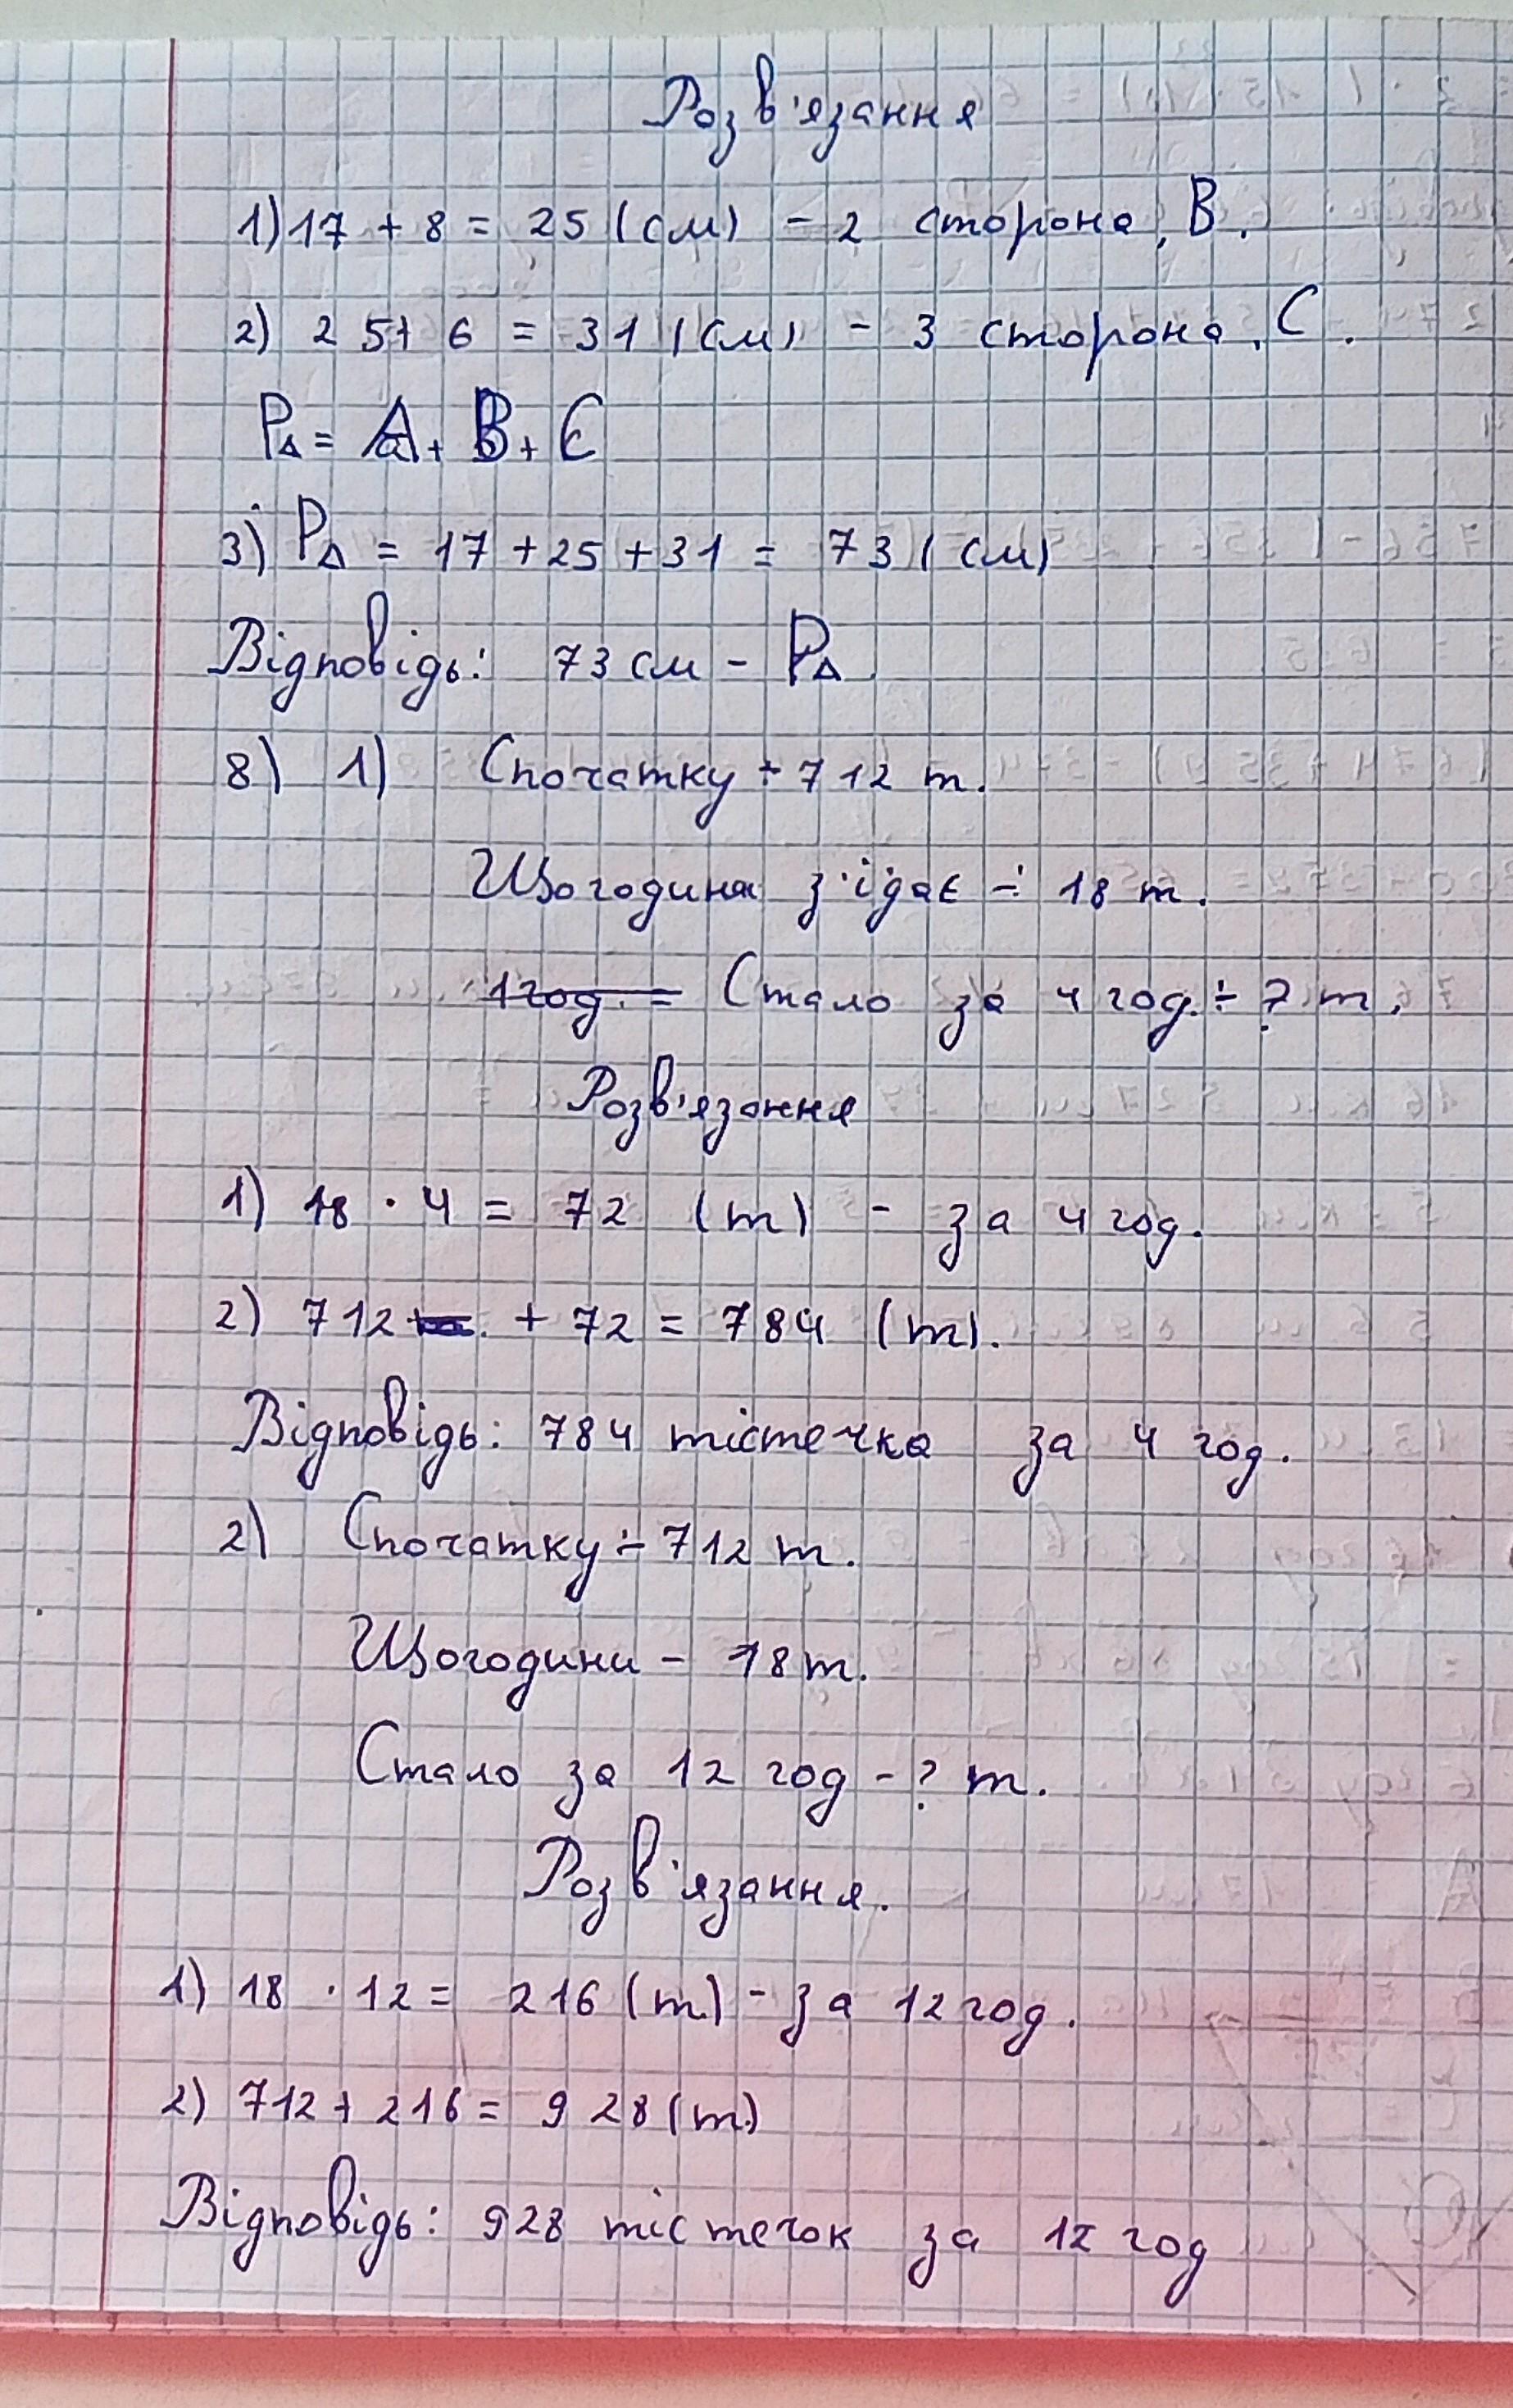 Розв'язання
1) 17 + 8 = 25 (см) - 2 сторона, В.
2) 25 + 6 = 31 (см) - 3 сторона, С.
P∆ = A + B + C
3) P∆ = 17 + 25 + 31 = 73 (см)
Відповідь: 73 см - P∆.
8) 1) Спочатку ÷ 712 т.
Щогодина з'їдає ÷ 18 т.
1 год. = Стало за 4 год. ÷ ? т.
Розв'язання
1) 18 · 4 = 72 (т) - за 4 год.
2) 712 + 72 = 784 (т).
Відповідь: 784 тістечка за 4 год.
2) Спочатку ÷ 712 т.
Щогодини - 18 т.
Стало за 12 год - ? т.
Розв'язання.
1) 18 · 12 = 216 (т) - за 12 год.
2) 712 + 216 = 928 (т)
Відповідь: 928 тістечок за 12 год